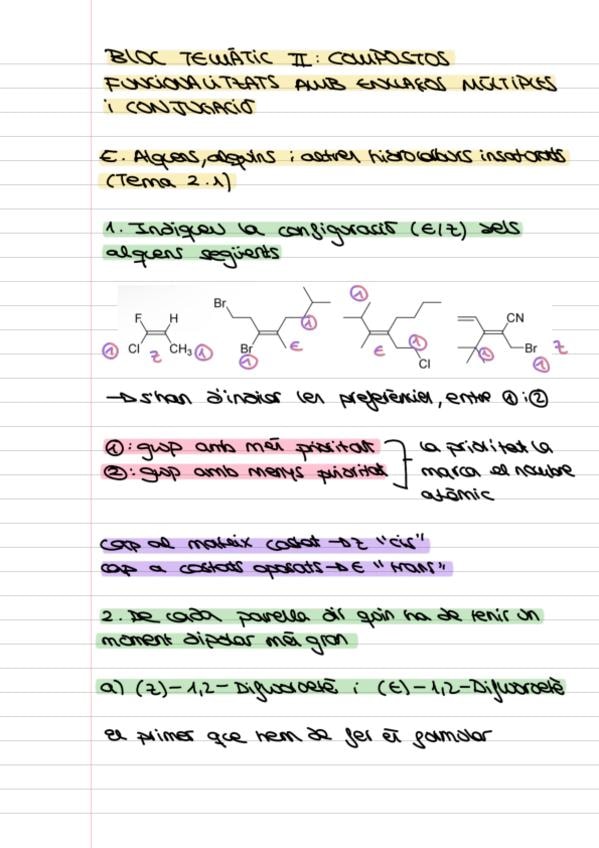 BLOC TEMÀTIC II: COMPOSTOS
FUNCIONALITZATS AMB ENLLAÇOS MÚLTIPLES
i CONJUGACIÓ
E. Alquens, alquins i altres hidrocarburs insaturats
(Tema 2.1)
1. Indiqueu la configuració (E/Z) dels
alquens següents
F H
Cl CH₃
① Z ①
Br
Br
① ① E
① ① E
Cl
CN
Br
① ① Z
→ s'han d'indicar les preferències, entre ① i ②
①: grup amb més prioritat
②: grup amb menys prioritat
la prioritat la
marca el nombre
atòmic
cap al mateix costat → Z "cis"
cap a costats oposats → E "trans"
2. De cada parella dir quin ha de tenir un
moment dipolar més gran
a) (Z)-1,2-Difluoroetè i (E)-1,2-Difluoroetè
el primer que hem de fer és formular